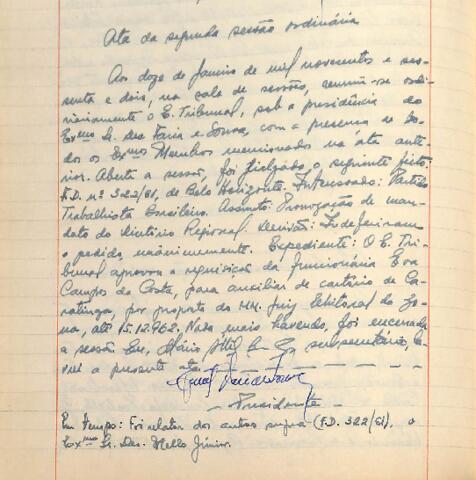 Ata da segunda sessão ordinária
Aos doze de Janeiro de mil novecentos e ses-
senta e dois, na sala de sessões, reuniu-se ordi-
nàriamente o E. Tribunal, sob a presidência do
Exmo Sr. des. Faria e Sousa, com a presença de to-
dos os Exmos Membros mencionados na ata ante-
rior. Aberta a sessão, foi julgado o seguinte feito:
F.D. nº 322/61, de Belo Horizonte. Interessado: Partido
Trabalhista Brasileiro. Assunto: Prorrogação de man-
dato do Diretório Regional. Decisão: Indeferiram
o pedido, unânimemente. Expediente: O E. Tri-
bunal aprovou a requisição da funcionária Eva
Campos da Costa, para auxiliar de cartório de Ca-
ratinga, por proposta do MM. Juiz Eleitoral da Zo-
na, até 15.12.962. Nada mais havendo, foi encerrada
a sessão. Eu, Mário secretário, la-
vrei a presente ata.
- Presidente -
Em tempo: Foi relator dos autos supra (F.D. 322/61), o
Exmo Sr. Des. Mello Júnior.